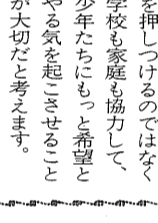 を押しつけるのではなく
学校も家庭も協力して、
少年たちにもっと希望と
やる気を起こさせること
が大切だと考えます。